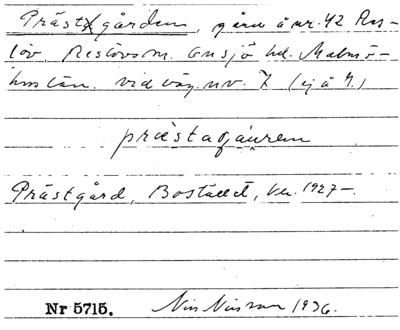 Prästgården, gård å nr. 42 Res-
löv, Reslövs sn. Onsjö hd. Malmö-
hus län. vid väg nv. 7 (ej å K.)
præstagáuren
Prästgård, Boställe, 1927-.
Nr 5715. Nils Nilsson 1936.